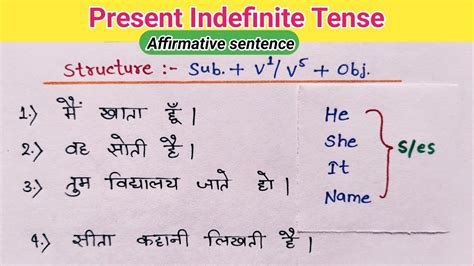 Present Indefinite Tense
Affirmative sentence
Structure :- Sub. + V¹/V⁵ + Obj.
1.) मैं खाता हूँ।
2.) वह सोती है।
3.) तुम विद्यालय जाते हो।
4.) सीता कहानी लिखती है।
He
She
It
Name
s/es